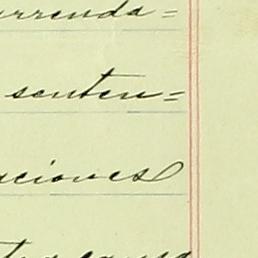 urrenda=
senten=
aciones